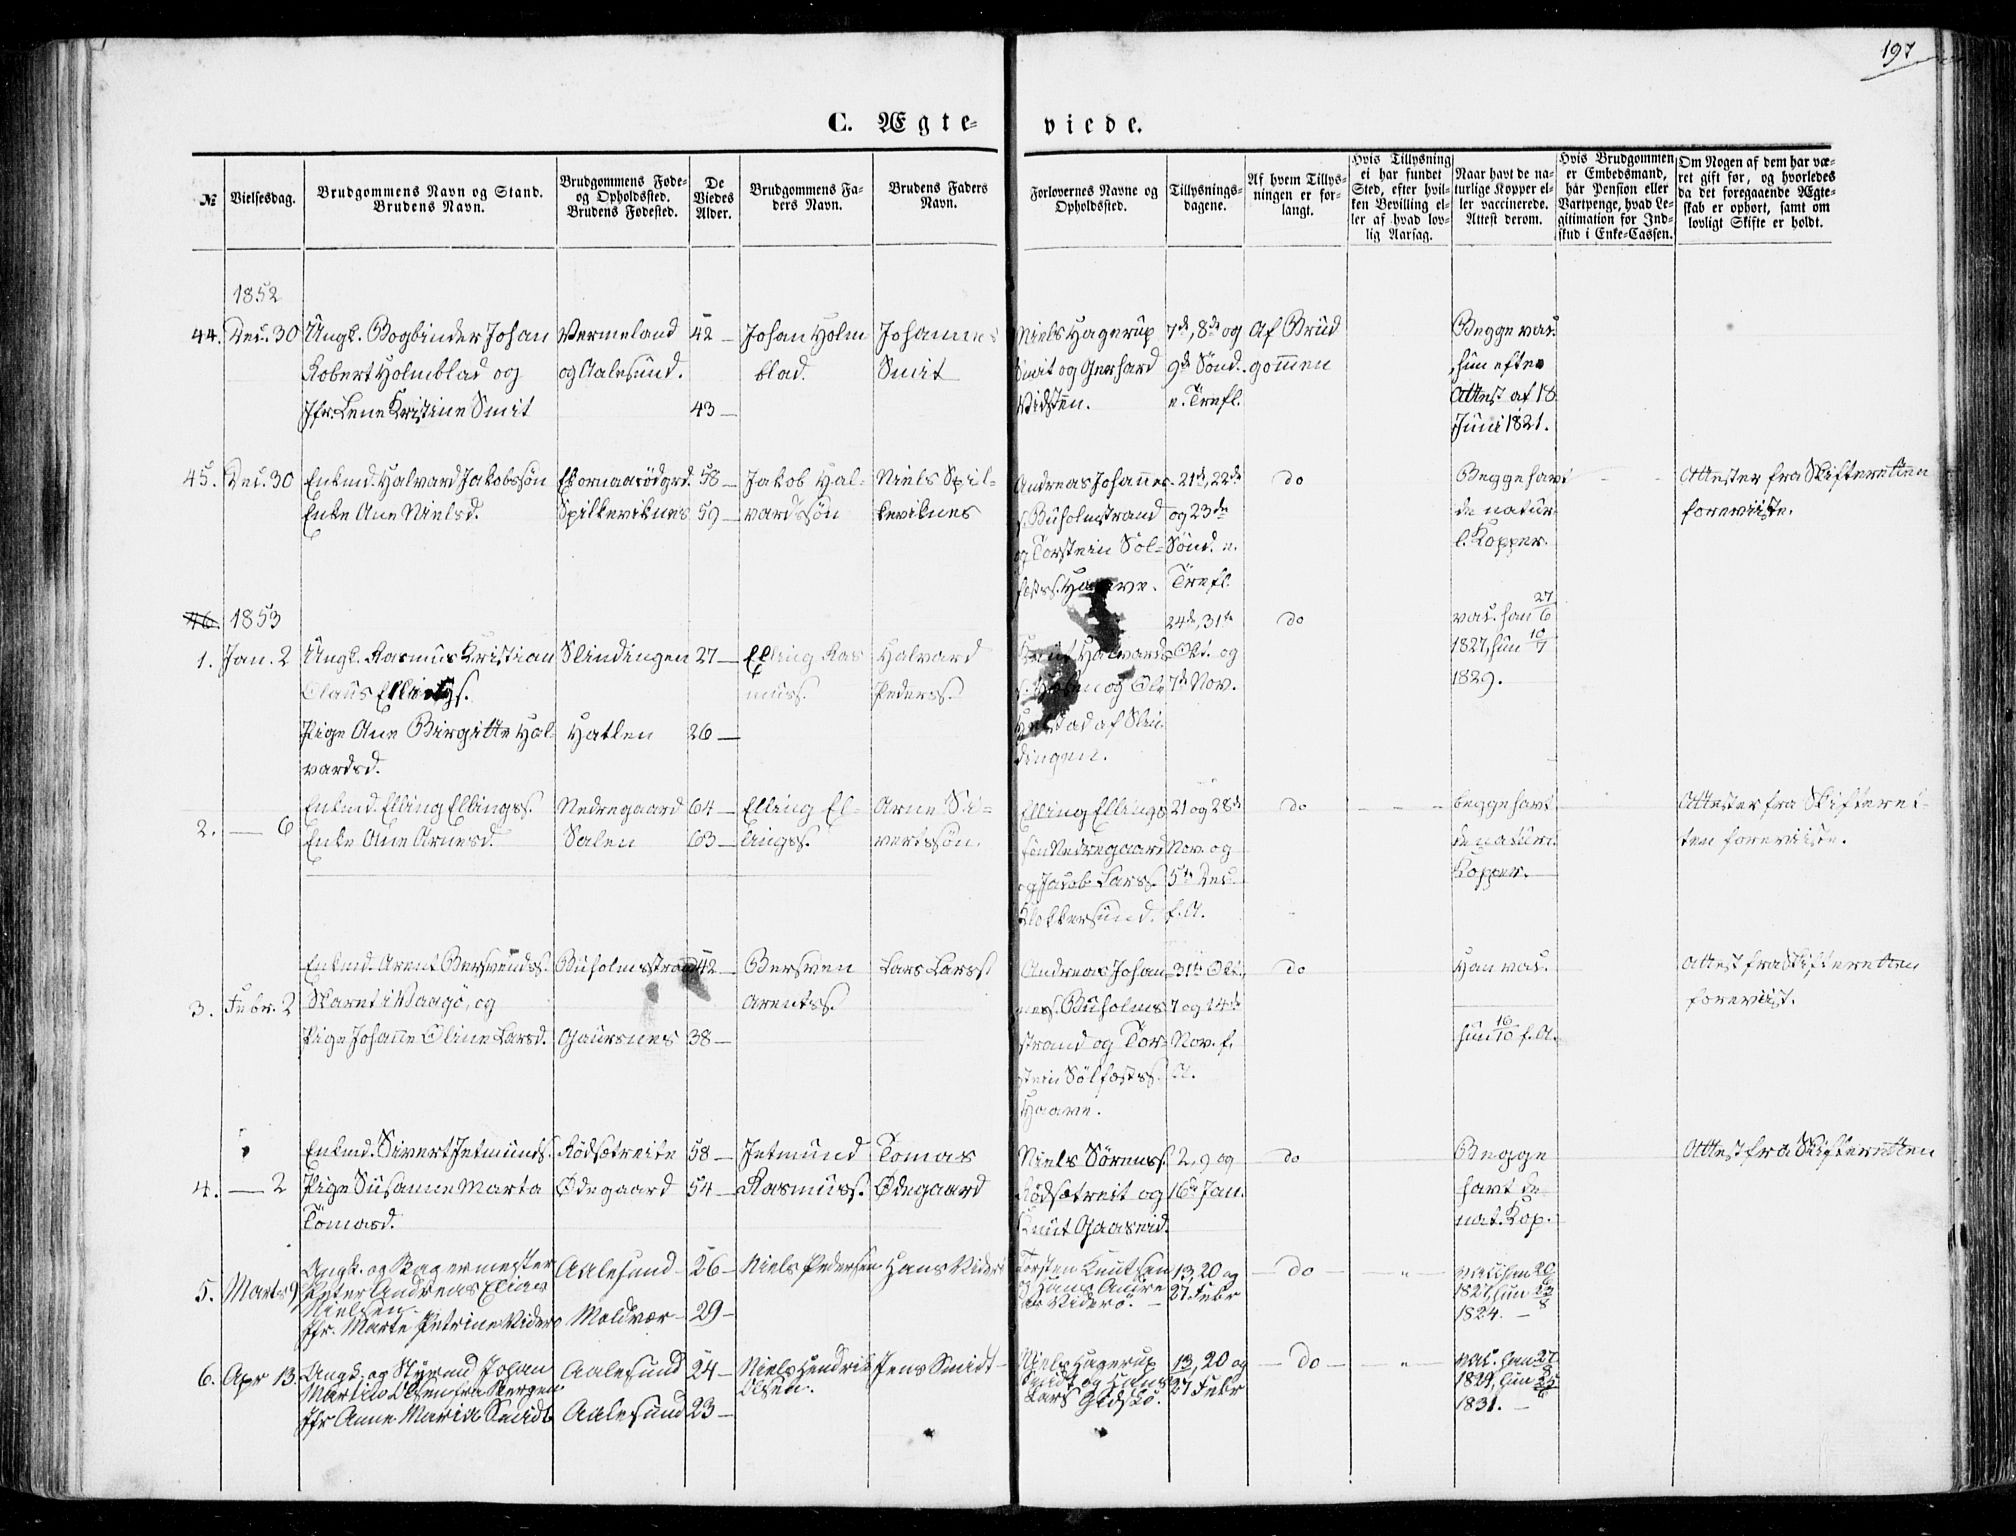 197
C. Ægte-
viede.
№
Vielsesdag.
Brudgommens Navn og Stand.
Brudens Navn.
Brudgommens Føde-
og Opholdssted.
Brudens Fødested.
De
Viedes
Alder.
Brudgommens Fa-
ders Navn.
Brudens Faders
Navn.
Forlovernes Navne og
Opholdssted.
Tillysnings-
dagene.
Af hvem Tillys-
ningen er for-
langt.
Hvis Tillysning
ei har fundet
Sted, efter hvil-
ken Bevilling el-
ler af hvad lov-
lig Aarsag.
Naar havt de na-
turlige Kopper el-
ler vaccinerede.
Attest derom.
Hvis Brudgommen
er Embedsmand,
har Pension eller
Vartpenge, hvad Le-
gitimation for Ind-
skud i Enke-Cassen.
Om Nogen af dem har væ-
ret gift før, og hvorledes
da det foregaaende Ægte-
skab er ophørt, samt om
lovligt Skifte er holdt.
1852
44. Dec. 30 Ungk. Bogbinder Johan
Robert Holmblad og
Jfr. Lene Kristine Smit
Vermeland
og Aalesund.
42
43
Johan Holm
blad.
Johannes
Smit
Niels Hagerup
Smit og Gerhard
Vidsten.
7de, 8de og
9de Sønd.
e. Trefl.
Af Brud
gommen
Begge vac.
hun efter
Attest af 18
Juni 1821.
45. Dec. 30 Enkmd. Halvard Jakobssøn
Enke Ane Nielsd.
Spilkeviknes
58
59
Jakob Hal-
vardssøn
Niels Spil-
keviknes
Andreas Johannes
s. Buholmstrand
og Torstein Sol-
21de, 22de
og 23de
Sønd. e.
Trefl.
do
Begge havt
de natur
l. Kopper.
Attester fra Skifteretten
foreviiste.
46. 1853
1. Jan. 2 Ungk. Rasmus Kristian
Claus Ellings.
Pige Ane Birgitte Hal-
vardsd.
Slindingen
Hatlen
27
26
Elling Ras
muss.
Halvard
Peders.
dingen.
24de, 31te
Okt. og
7de Nov.
do
vac. han 27/6
1827, hun 10/7
1829.
2. — 6 Enkmd. Elling Ellingss.
Enke Ane Arnesd.
Nedregaard
Salen
64
63
Elling El-
lingss.
Arne Si-
vertssøn.
Elling Ellings
søn Nedregaard
og Jacob Larss.
Klokkersund.
21 og 28de
Nov. og
5te Dec.
f. A.
do
begge havt
de naturl.
Kopper.
Attester fra Skifteret-
ten foreviiste.
3. Febr. 2 Enkmd. Arent Bersvends.
Skaret i Vaagø, og
Pige Johanne Oline Larsd.
Buholmstrand
Gaursnes
42
38
Bersven
Arentss.
Lars Larss.
Andreas Johan
nes. Buholms
strand og Tor-
stein Solfæstss.
Haave.
31te Okt.
7 og 14de
Nov. f.
A.
do
Han vac.
hun 16/10 f. A.
Attest fra Skifteretten
foreviist.
4. — 2 Enkmd. Sivert Jetmunds.
Pige Susanne Marta
Tomasd.
Rødsætreite
Ødegaard
58
54
Jetmund
Rasmuss.
Tomas
Ødegaard
Niels Sørenss.
Rødsætreit og
Knut Gaaseid.
2, 9 og
16de Jan.
do
Begge
havt de
nat. Kop.
Attest fra Skifteretten
5. Marts 9 Ungk. og Bagermester
Peter Andreas Elias
Nielsen
Jfr. Marte Petrine Viderø
Aalesund
Moldvær
26
29
Niels Pedersen
Hans Viderø
Torsten Knutsen
og Hans Andre
as Viderø.
13, 20 og
27 Febr
do
1827, hun
1824.
6. Apr 13. Ungk. og Styrmd Johan
Martin Olsen fra Bergen
Jfr Anne Maria Smidt
Aalesund
Aalesund
24
23
Niels Hendrik
Olsen.
Jens Smidt
Niels Hagerup
Smidt og Hans
Lars Gidskø.
13, 20 og
27 Febr
do
vac. han 27
1829, hun 25
1831.